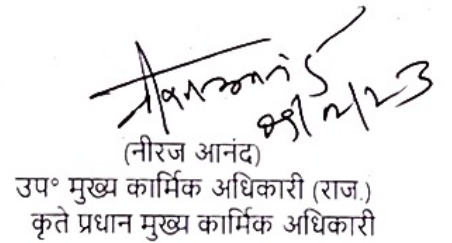 नीरज आनंद
(नीरज आनंद)
उप॰ मुख्य कार्मिक अधिकारी (राज.)
कृते प्रधान मुख्य कार्मिक अधिकारी